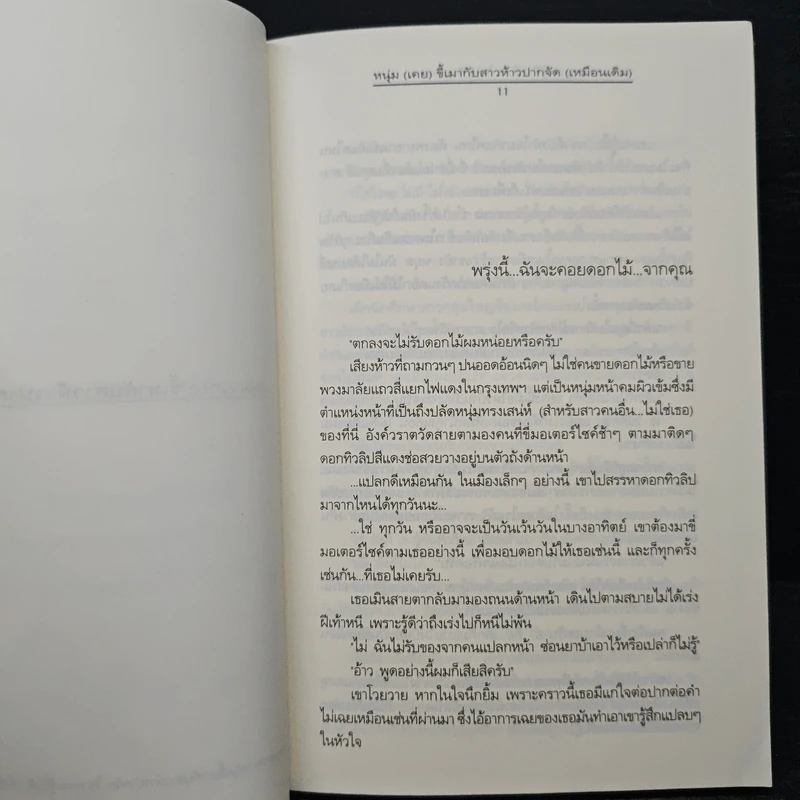 หนุ่ม (เคย) ขี้เมากับสาวห้าวปากจัด (เหมือนเดิม)
11
พรุ่งนี้...ฉันจะคอยดอกไม้...จากคุณ
"ตกลงจะไม่รับดอกไม้ผมหน่อยหรือครับ"
เสียงห้าวที่ถามกวนๆ ปนออดอ้อนนิดๆ ไม่ใช่คนขายดอกไม้หรือขาย
พวงมาลัยแถวสี่แยกไฟแดงในกรุงเทพฯ แต่เป็นหนุ่มหน้าคมผิวเข้มซึ่งมี
ตำแหน่งหน้าที่เป็นถึงปลัดหนุ่มทรงเสน่ห์ (สำหรับสาวคนอื่น...ไม่ใช่เธอ)
ของที่นี่ อังค์วราตวัดสายตามองคนที่ขี่มอเตอร์ไซค์ช้าๆ ตามมาติดๆ
ดอกทิวลิปสีแดงช่อสวยวางอยู่บนตัวถังด้านหน้า
...แปลกดีเหมือนกัน ในเมืองเล็กๆ อย่างนี้ เขาไปสรรหาดอกทิวลิป
มาจากไหนได้ทุกวันนะ...
...ใช่ ทุกวัน หรืออาจจะเป็นวันเว้นวันในบางอาทิตย์ เขาต้องมาขี่
มอเตอร์ไซค์ตามเธออย่างนี้ เพื่อมอบดอกไม้ให้เธอเช่นนี้ และก็ทุกครั้ง
เช่นกัน...ที่เธอไม่เคยรับ...
เธอเมินสายตากลับมามองถนนด้านหน้า เดินไปตามสบายไม่ได้เร่ง
ฝีเท้าหนี เพราะรู้ดีว่าถึงเร่งไปก็หนีไม่พ้น
"ไม่ ฉันไม่รับของจากคนแปลกหน้า ซ่อนยาบ้าเอาไว้หรือเปล่าก็ไม่รู้"
"อ้าว พูดอย่างนี้ผมก็เสียสิครับ"
เขาโวยวาย หากในใจนึกยิ้ม เพราะคราวนี้เธอมีแก่ใจต่อปากต่อคำ
ไม่เฉยเหมือนเช่นที่ผ่านมา ซึ่งไอ้อาการเฉยของเธอมันทำเอาเขารู้สึกแปลบๆ
ในหัวใจ